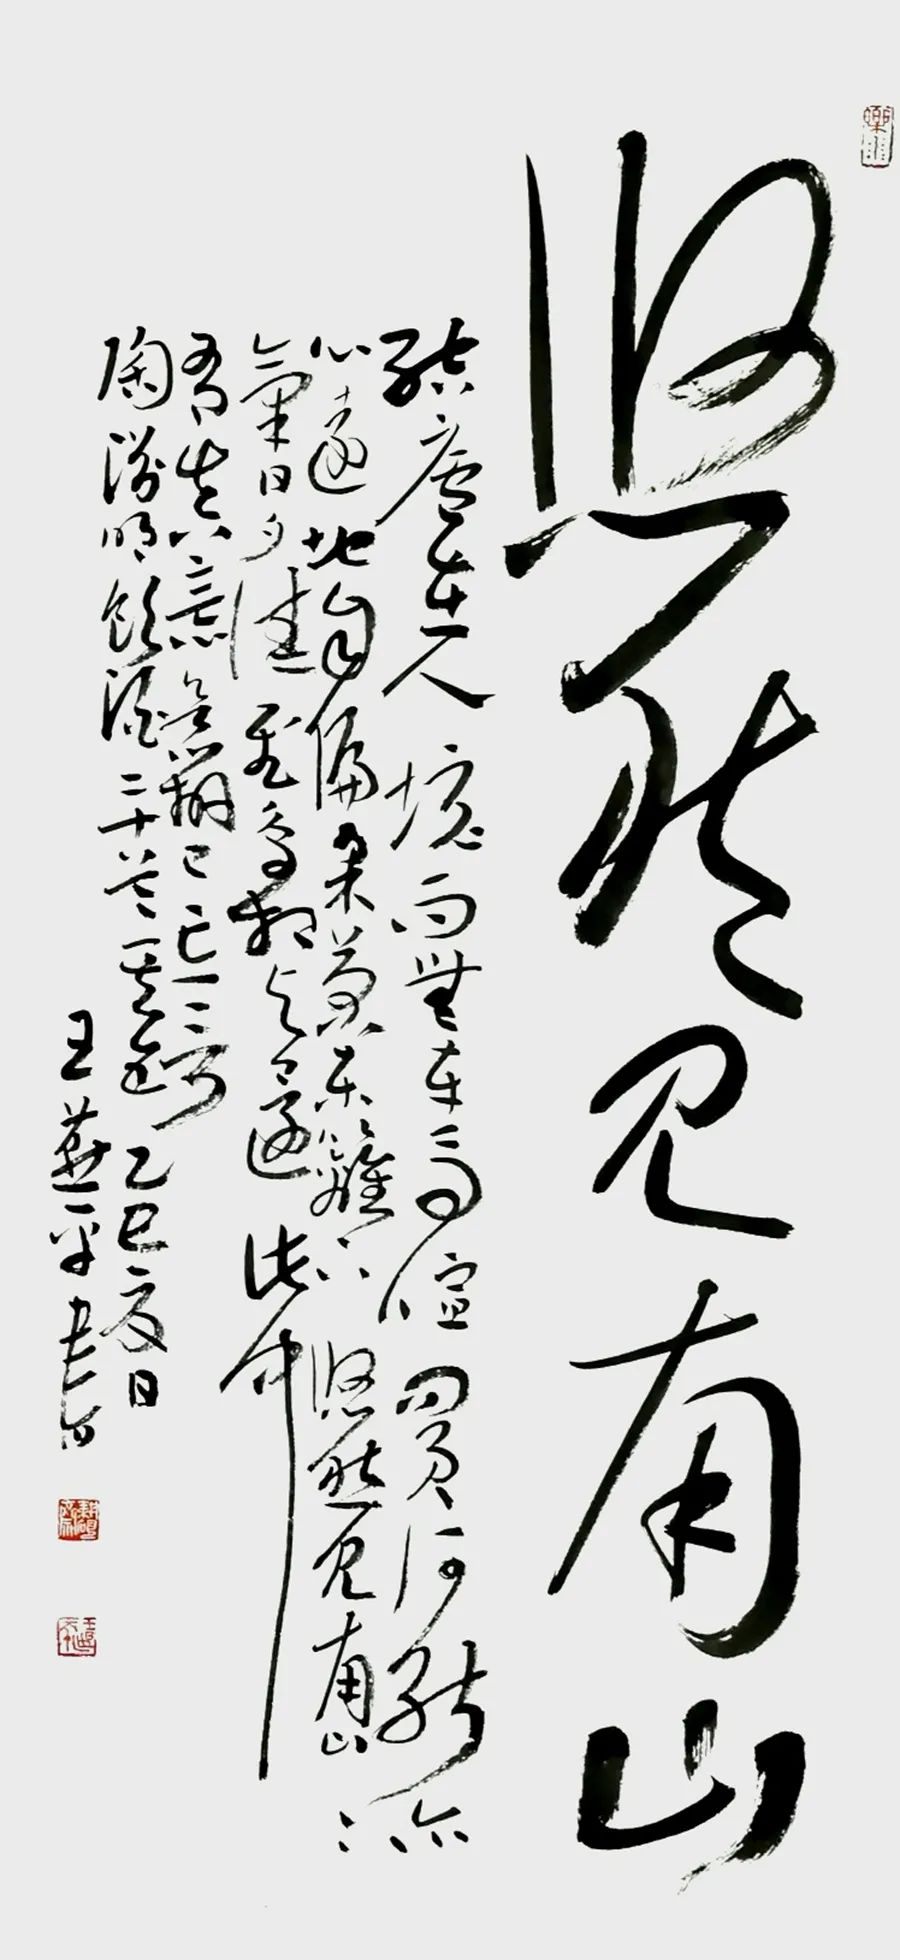 悠然見南山
結廬在人境而無車馬喧問君何能尔
心遠地自偏采菊東籬下悠然見南山
氣日夕佳飛鳥相與還此中
有真意欲辯已忘言
陶淵明飲酒二十首其五 乙巳夏日
王燕平書